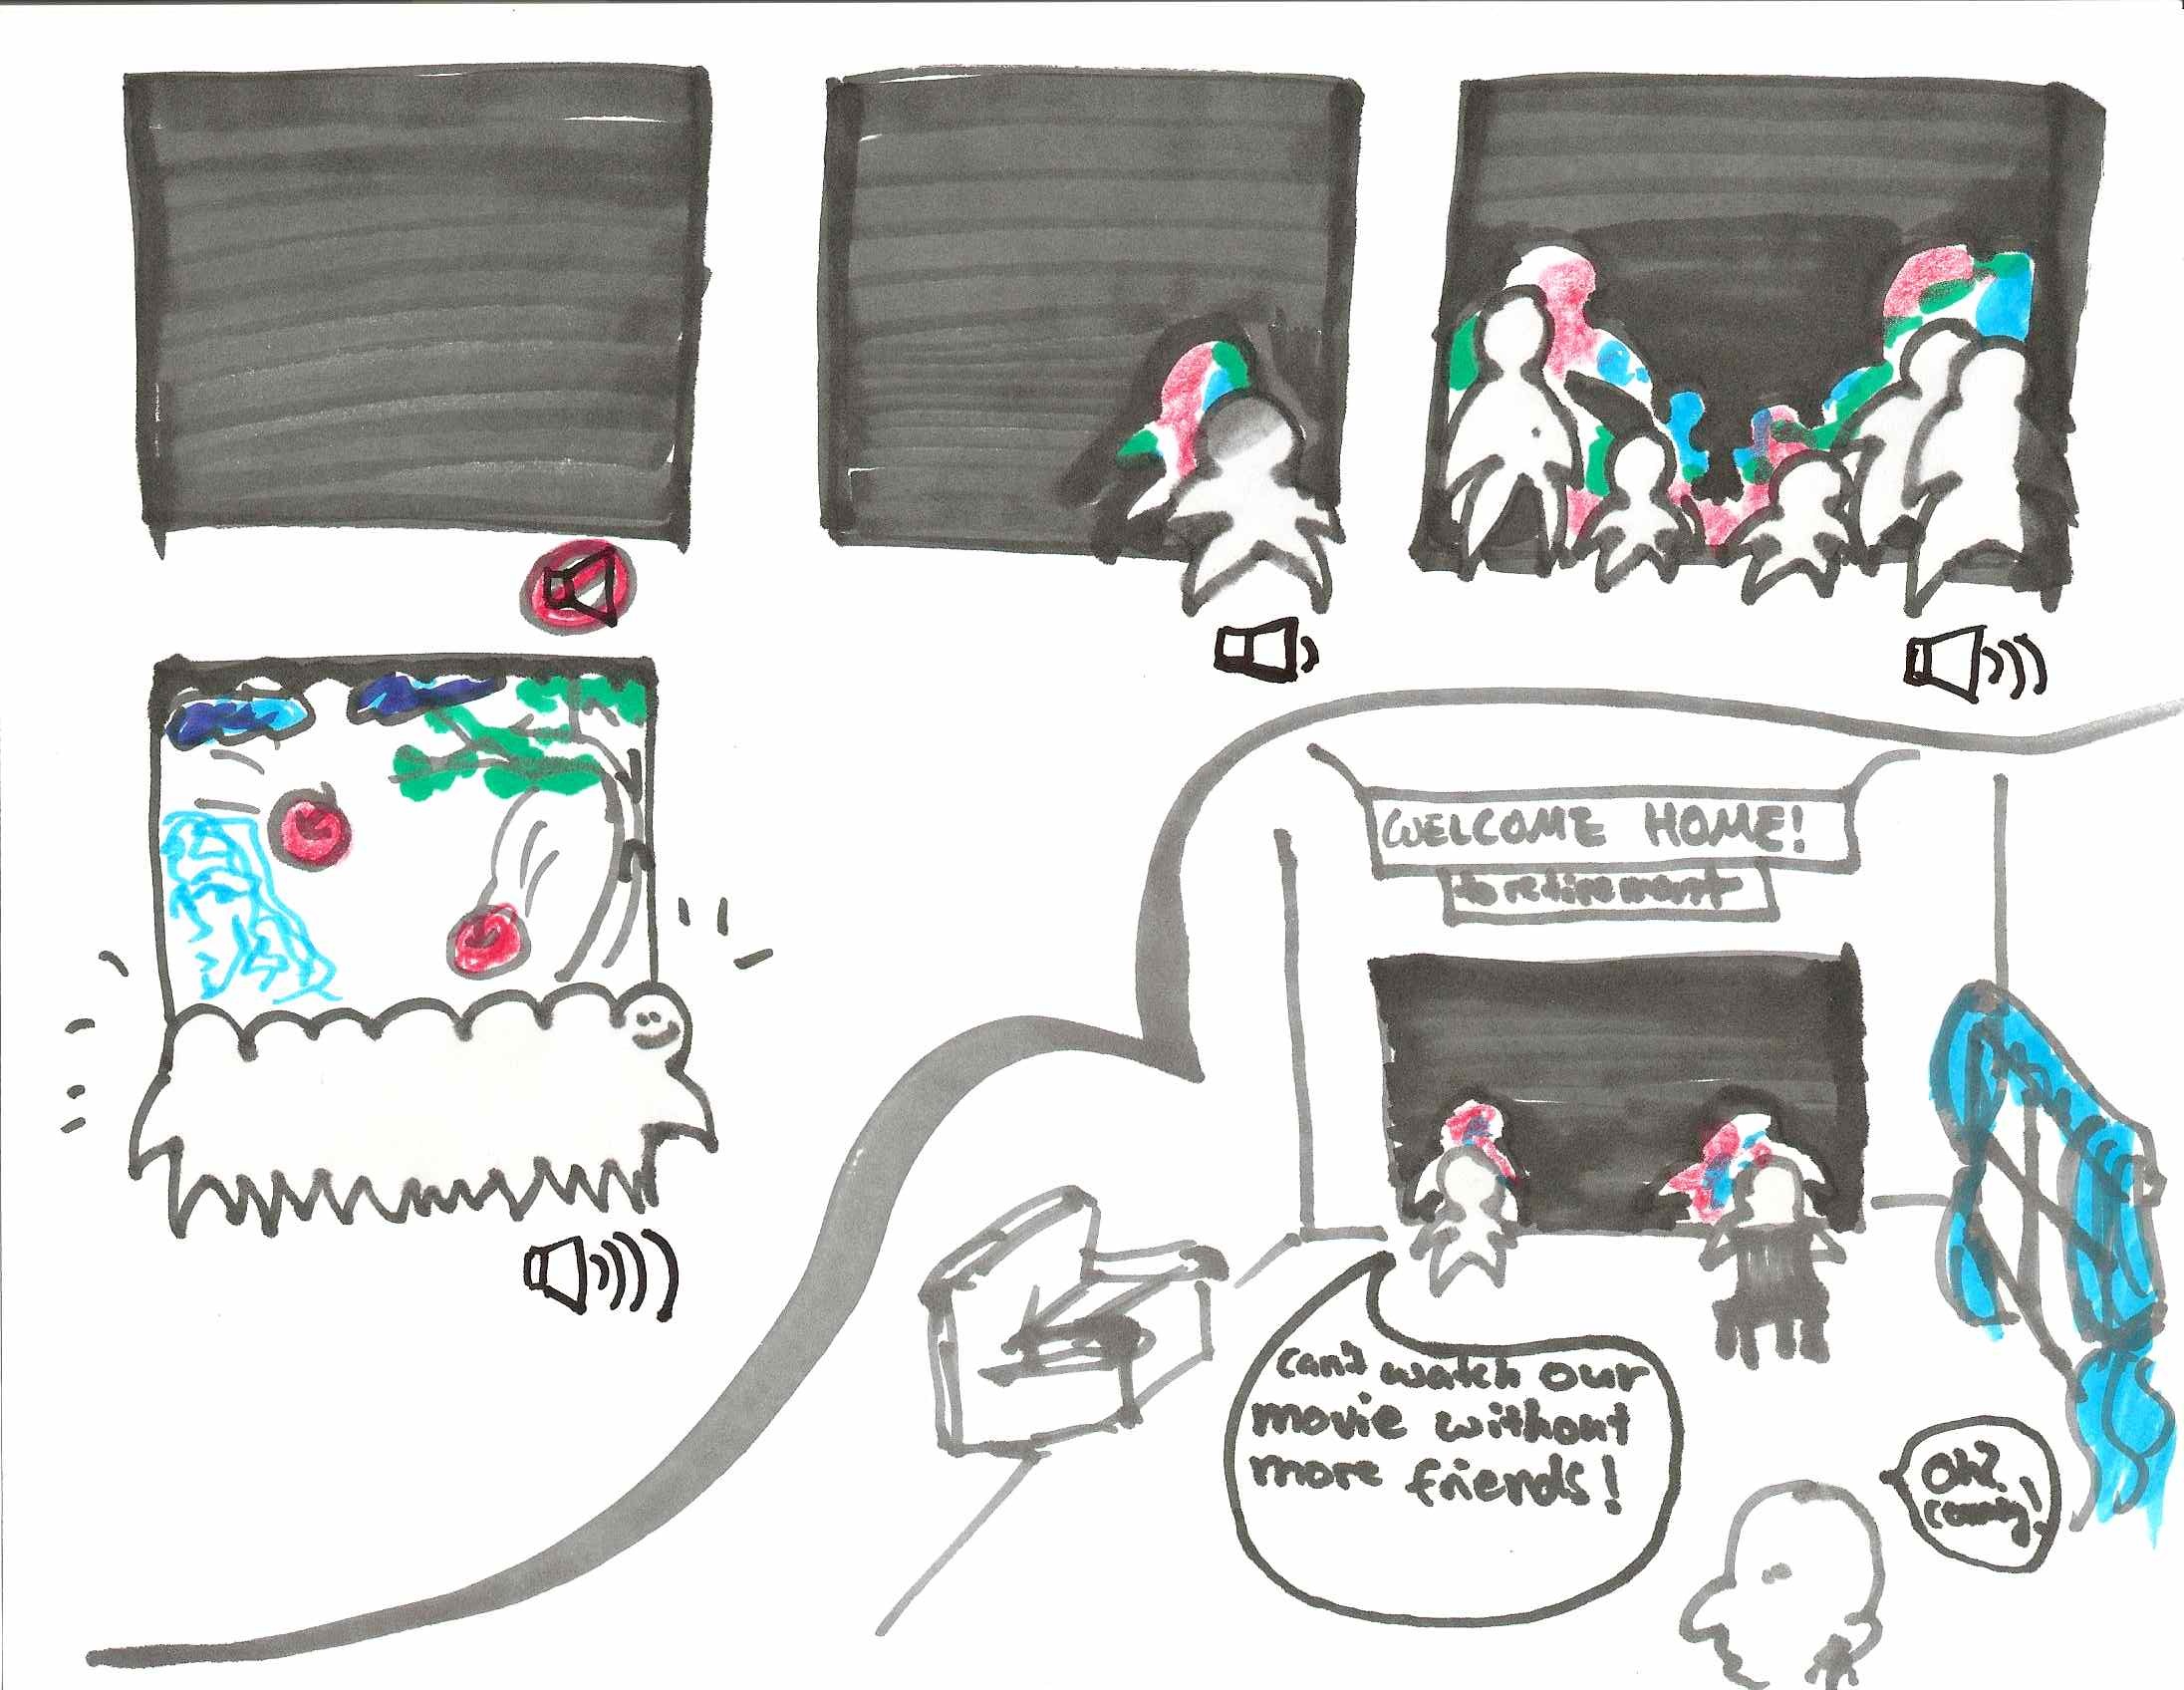 WELCOME HOME!
to retirement
can't watch our
movie without
more friends!
Oh?
coming!